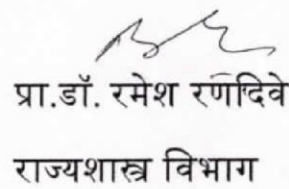 प्रा.डॉ. रमेश रणदिवे
राज्यशास्त्र विभाग